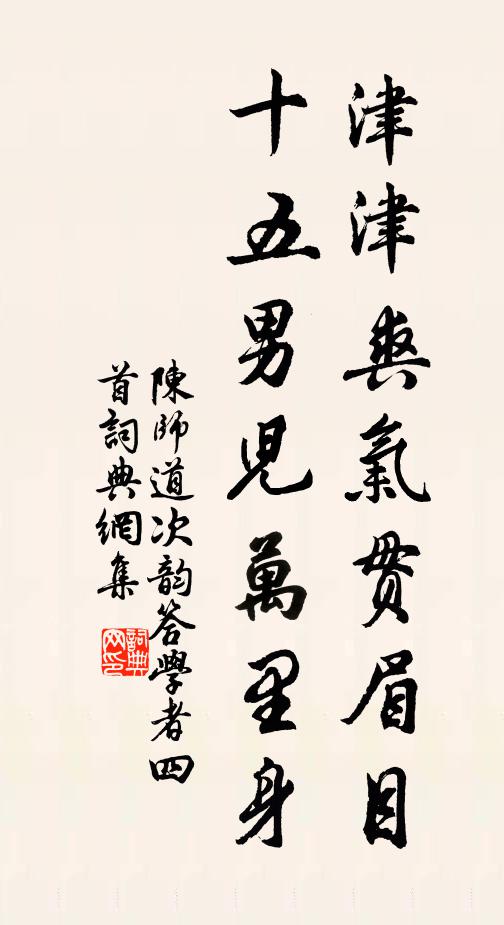 津津爽氣貫眉目
十五男兒萬里身
陳師道次韵答學者四
首詞典網集
詞典
网印